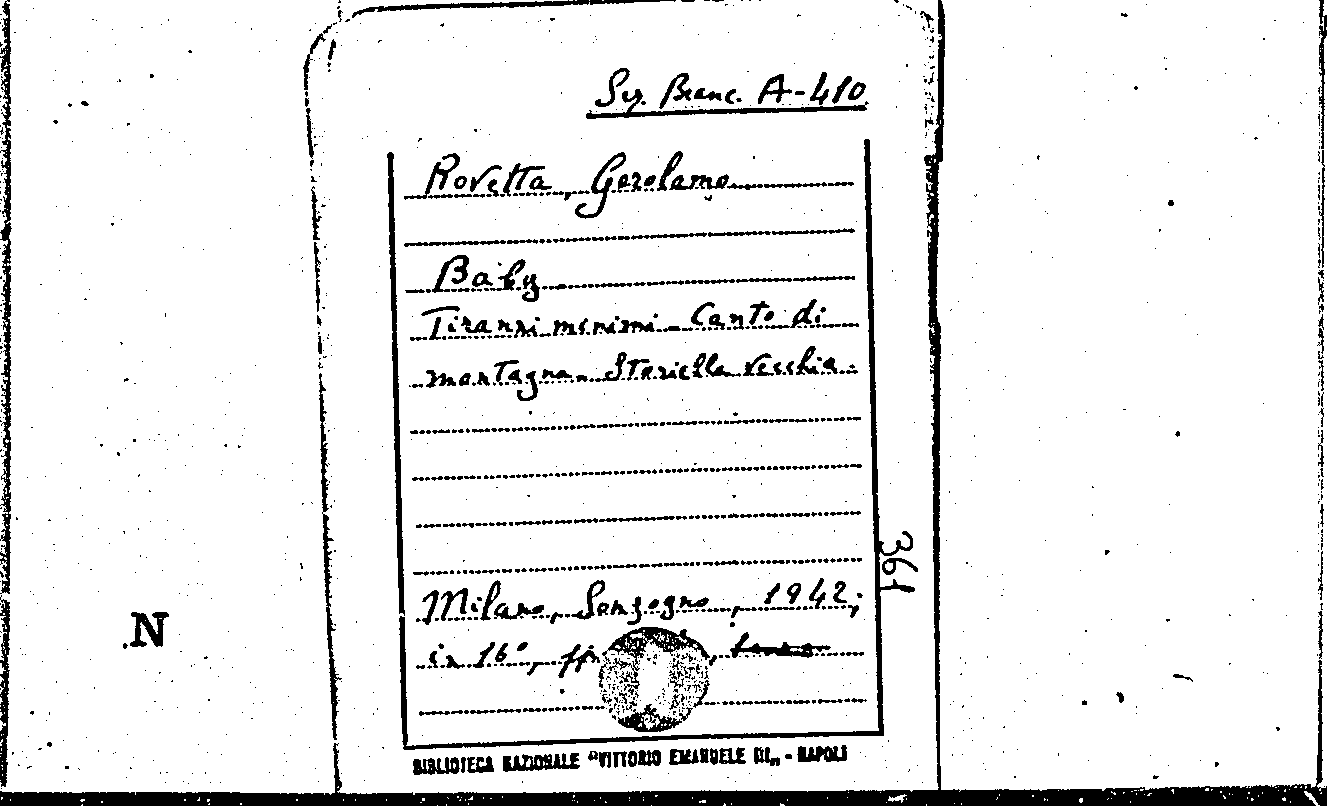 Sez. Branc. A-410
Rovetta, Gerolamo
Baby
Tiranni minimi - Canto di
montagna - Storiella vecchia.
361
Milano, Sonzogno, 1942;
N
in 16°,
BIBLIOTECA NAZIONALE "VITTORIO EMANUELE III„ - NAPOLI